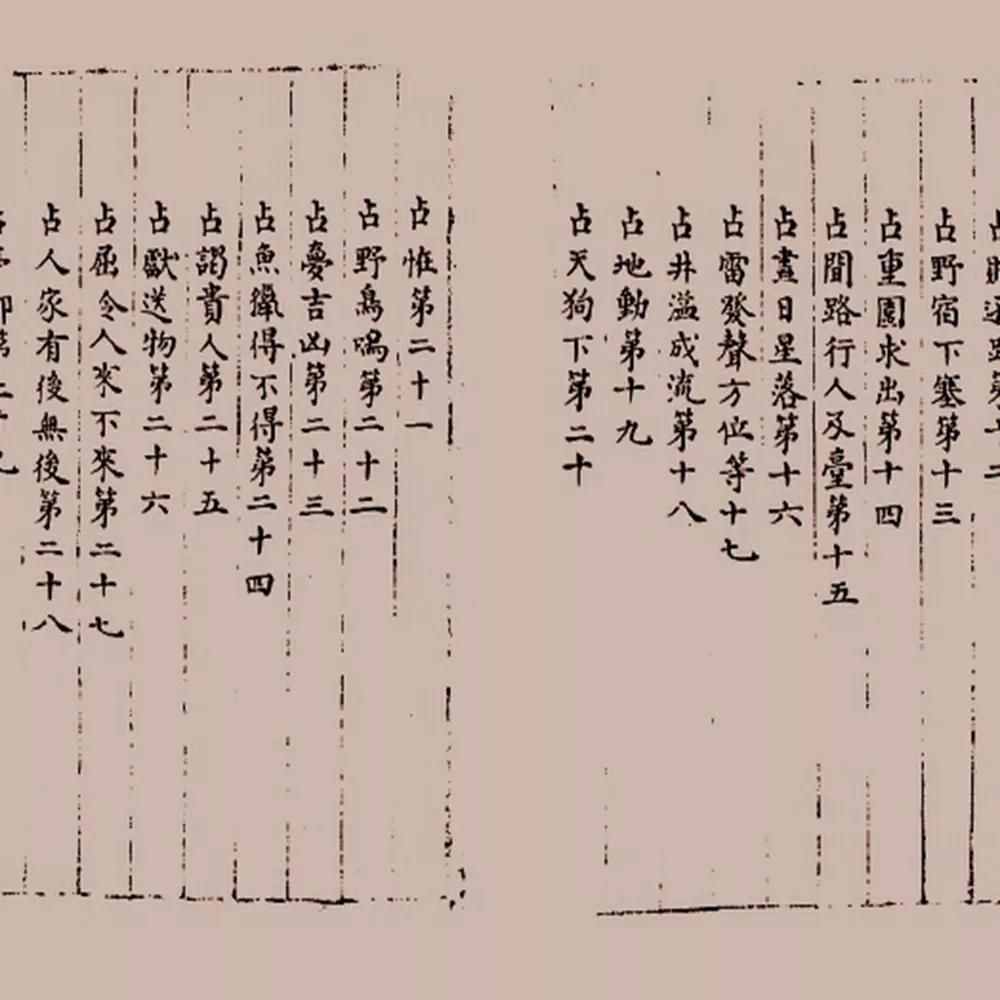 占野宿下塞第十三
占重圍求出第十四
占間路行人及臺第十五
占晝日星落第十六
占雷發聲方位等十七
占井溢成流第十八
占地動第十九
占天狗下第二十
占惟第二十一
占野鳥鳴第二十二
占憂吉凶第二十三
占魚獵得不得第二十四
占謁貴人第二十五
占獻送物第二十六
占屈令人來不來第二十七
占人家有後無後第二十八